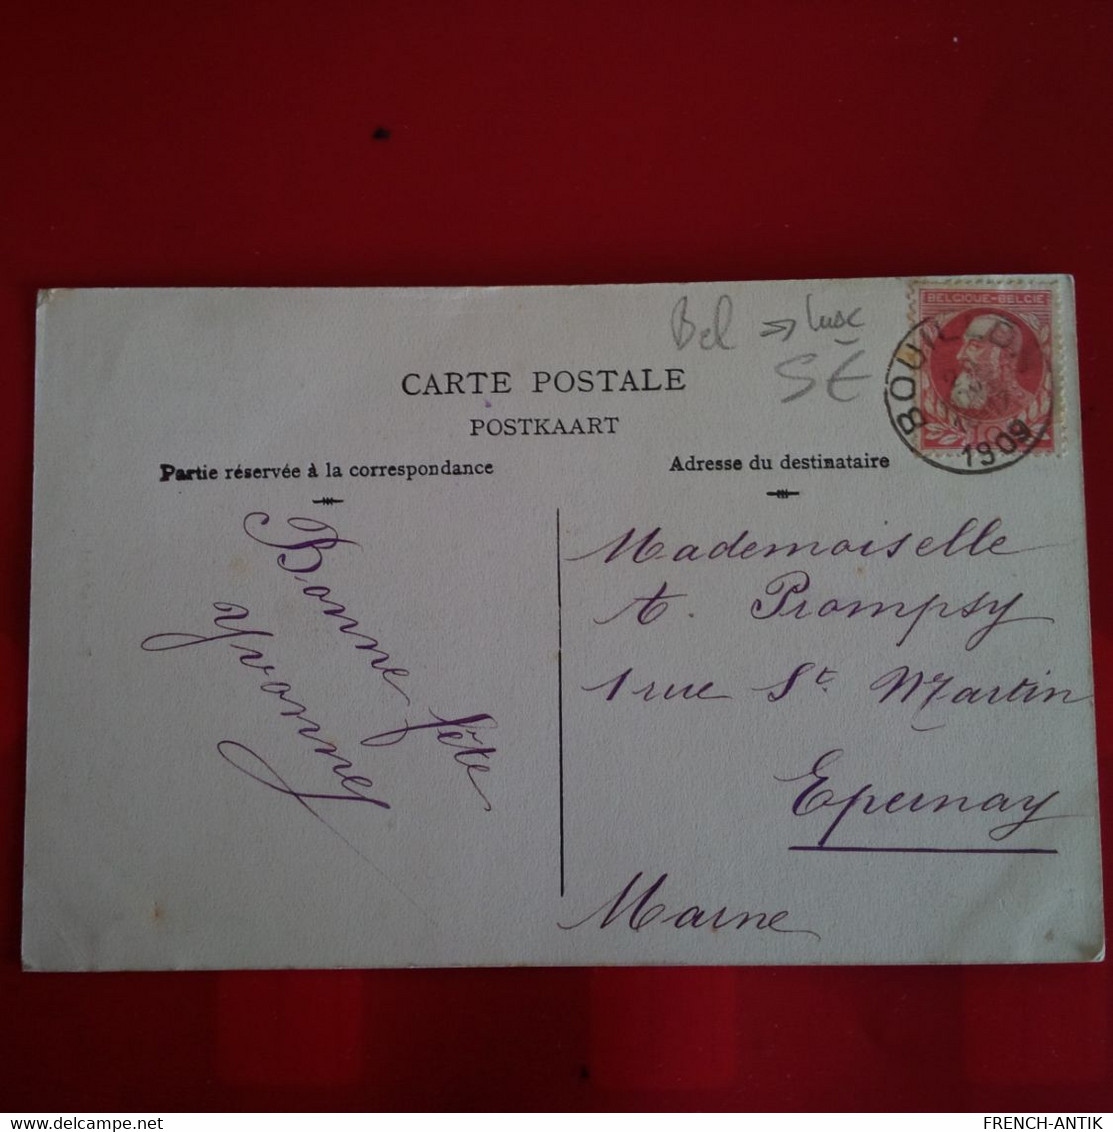 Bel → luxe
5 €
BELGIQUE-BELGIË
BOUILLON
1909
CARTE POSTALE
POSTKAART
Partie réservée à la correspondance
Adresse du destinataire
Bonne fête
Yvonne
Mademoiselle
A. Prompsy
1 rue St. Martin
Epernay
Marne
delcampe.net
FRENCH-ANTIK